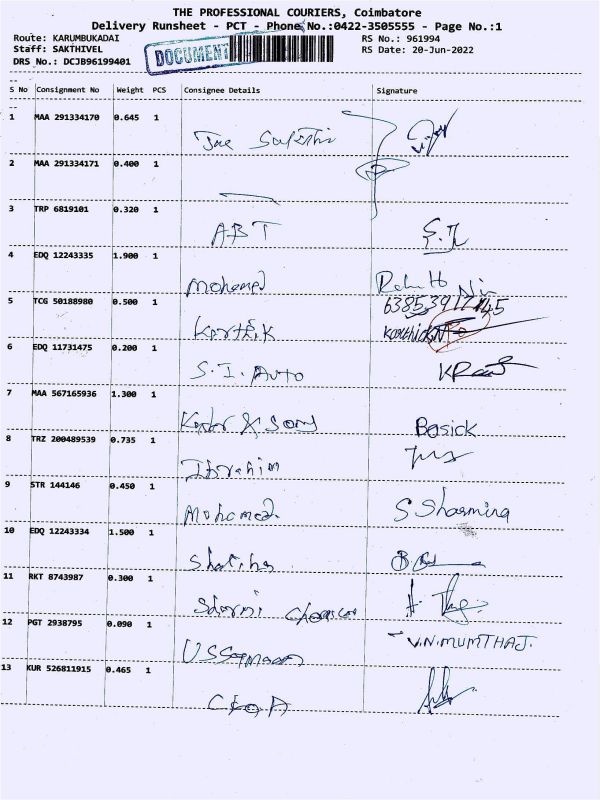 THE PROFESSIONAL COURIERS, Coimbatore
Delivery Runsheet - PCT - Phone No.:0422-3505555 - Page No.:1
Route: KARUMBUKADAI RS No.: 961994
Staff: SAKTHIVEL DOCUMENT RS Date: 20-Jun-2022
DRS No.: DCJB96199401
S No Consignment No Weight PCS Consignee Details Signature
1 MAA 291334170 0.645 1
2 MAA 291334171 0.400 1
3 TRP 6819101 0.320 1
ABT
4 EDQ 12243335 1.900 1
Mohamed
5 TCG 50188980 0.500 1
Karthik
6 EDQ 11731475 0.200 1
S.I. Auto
7 MAA 567165936 1.300 1
& Sons Basick
8 TRZ 200489539 0.735 1
Ibrahim
9 STR 144146 0.450 1
Mohamed S Sharmina
10 EDQ 12243334 1.500 1
11 RKT 8743987 0.300 1
12 PGT 2938795 0.090 1
V.N.MUMTHAJ.
13 KUR 526811915 0.465 1